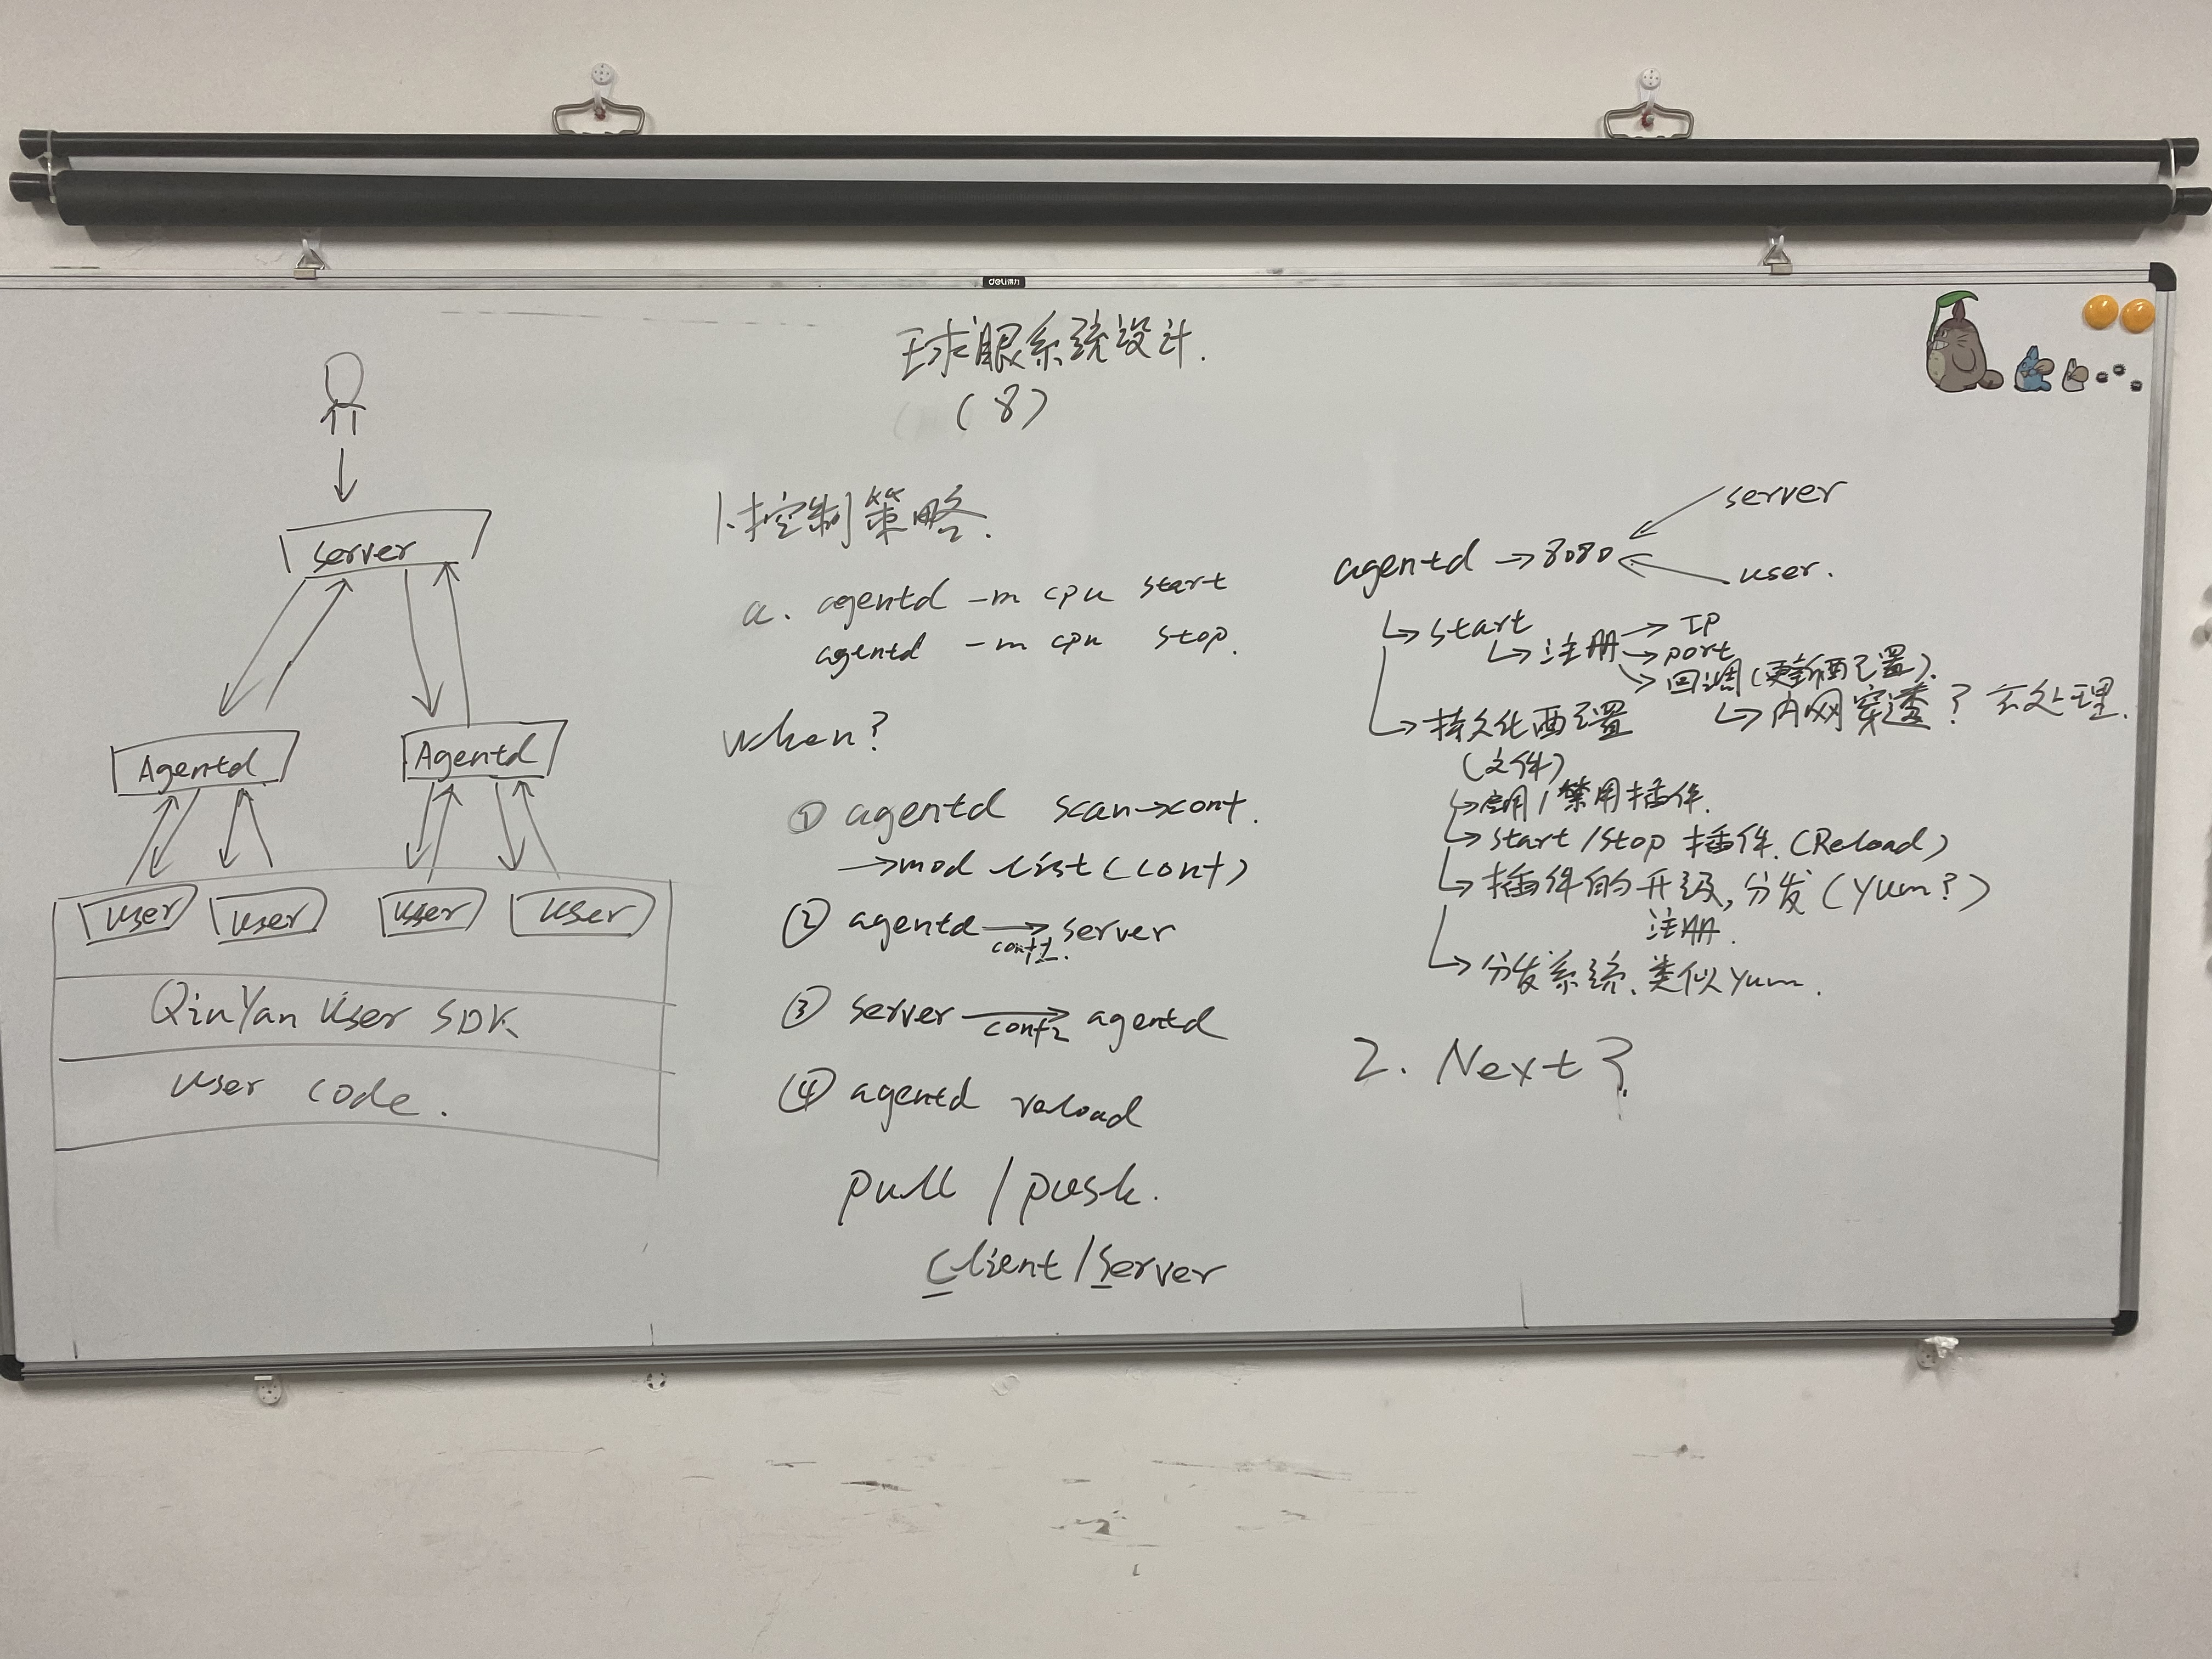 deli得力
球眼系统设计.
(8)
server
Agentd
Agentd
user
user
user
user
QinYan User SDK
user code.
1.控制策略.
a. agentd -m cpu start
agentd -m cpu stop.
when?
① agentd scan→conf.
→mod list(conf)
② agentd → server
conf1.
③ server → agentd
conf2
④ agentd reload
pull / push.
Client/Server
server
agentd →8080
user.
↳ start
↳ 注册 → IP
→ port
→ 回调(更新配置).
↳ 内网穿透? 云处理.
↳ 持久化配置
(文件)
↳ 启用/禁用插件.
↳ start/stop 插件.(Reload)
↳ 插件的升级,分发(yum?)
注册.
↳ 分发系统、类似yum.
2. Next?